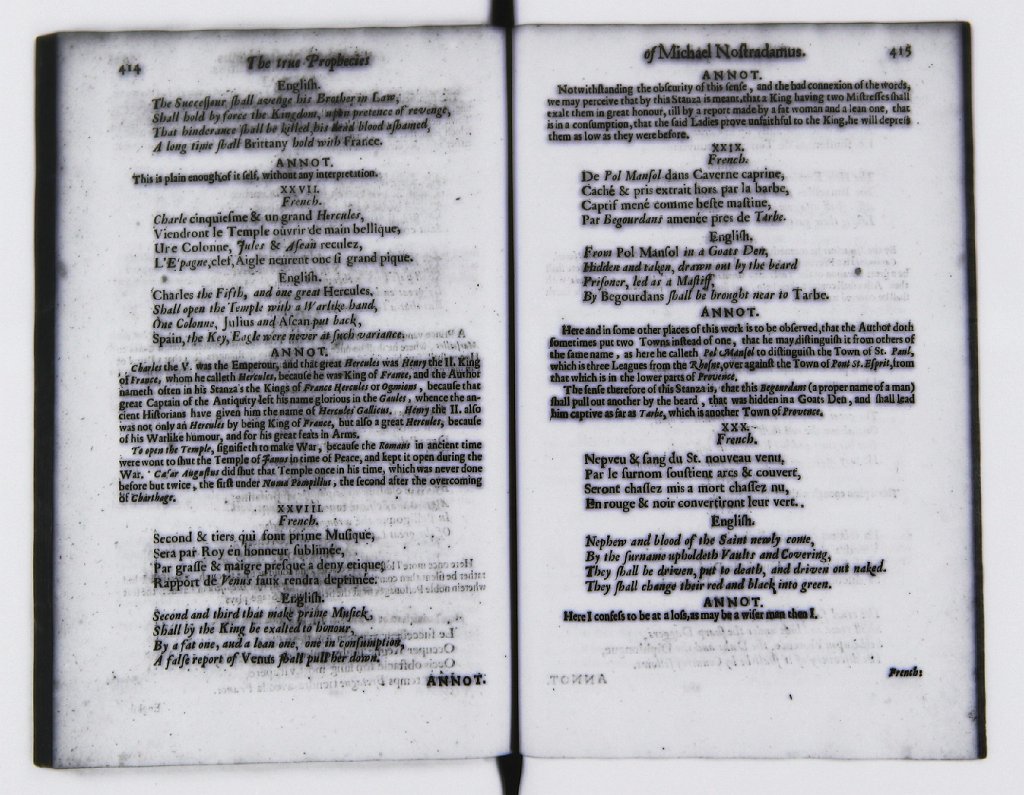 414
The true Prophecies
English.
The Succeſſour ſhall avenge his Brother in Law,
Shall hold by force the Kingdom, upon pretence of revenge,
That hinderance ſhall be killed, his dead blood aſhamed,
A long time ſhall Brittany hold with France.
ANNOT.
This is plain enough of it ſelf, without any interpretation.
XXVII.
French.
Charle cinquieſme & un grand Hercules,
Viendront le Temple ouvrir de main bellique,
Une Colonne, Jules & Aſcan reculez,
L'Eſpagne, clef, Aigle neurent onc ſi grand pique.
English.
Charles the Fifth, and one great Hercules,
Shall open the Temple with a Warlike hand,
One Colonne, Julius and Aſcan put back,
Spain, the Key, Eagle were never at ſuch variance.
ANNOT.
Charles the V. was the Emperour, and that great Hercules was Henry the II. King
of France, whom he calleth Hercules, becauſe he was King of France, and the Author
nameth often in his Stanza's the Kings of France Hercules or Ogmions, becauſe that
great Captain of the Antiquity left his name glorious in the Gaules, whence the an-
cient Hiſtorians have given him the name of Hercules Gallicus. Henry the II. alſo
was not only an Hercules by being King of France, but alſo a great Hercules, becauſe
of his Warlike humour, and for his great feats in Arms.
To open the Temple, ſignifieth to make War, becauſe the Romans in ancient time
were wont to ſhut the Temple of Janus in time of Peace, and kept it open during the
War. Cæſar Auguſtus did ſhut that Temple once in his time, which was never done
before but twice, the firſt under Numa Pompilius, the ſecond after the overcoming
of Charthage.
XXVIII.
French.
Second & tiers qui font prime Muſique,
Sera par Roy en honneur ſublimée,
Par graſſe & maigre preſque a deny etique,
Rapport de Venus faux rendra deprimée.
English.
Second and third that make prime Muſick,
Shall by the King be exalted to honour,
By a fat one, and a lean one, one in conſumption,
A falſe report of Venus ſhall pull her down.
ANNOT.
of Michael Noſtradamus.
415
ANNOT.
Notwithſtanding the obſcurity of this ſenſe, and the bad connexion of the words,
we may perceive that by this Stanza is meant, that a King having two Miſtreſſes ſhall
exalt them in great honour, till by a report made by a fat woman and a lean one, that
is in a conſumption, that the ſaid Ladies prove unfaithful to the King, he will depreſs
them as low as they were before.
XXIX.
French.
De Pol Manſol dans Caverne caprine,
Caché & pris extrait hors par la barbe,
Captif mené comme beſte maſtine,
Par Begourdans amenée pres de Tarbe.
English.
From Pol Manſol in a Goats Den,
Hidden and taken, drawn out by the beard
Priſoner, led as a Maſtiff,
By Begourdans ſhall be brought near to Tarbe.
ANNOT.
Here and in ſome other places of this work is to be obſerved, that the Author doth
ſometimes put two Towns inſtead of one, that he may diſtinguiſh it from others of
the ſame name, as here he calleth Pol Manſol to diſtinguiſh the Town of St. Paul,
which is three Leagues from the Rhoſne, over againſt the Town of Pont St. Eſprit, from
that which is in the lower parts of Provence.
The ſenſe therefore of this Stanza is, that this Begourdam (a proper name of a man)
ſhall pull out another by the beard, that was hidden in a Goats Den, and ſhall lead
him captive as far as Tarbe, which is another Town of Provence.
XXX.
French.
Nepveu & ſang du St. nouveau venu,
Par le ſurnom ſouſtient arcs & couvert,
Seront chaſſez mis a mort chaſſez nu,
En rouge & noir convertiront leur vert.
English.
Nephew and blood of the Saint newly come,
By the ſurname upholdeth Vaults and Covering,
They ſhall be driven, put to death, and driven out naked.
They ſhall change their red and black into green.
ANNOT.
Here I confeſs to be at a loſs, as may be a wiſer man then I.
French: